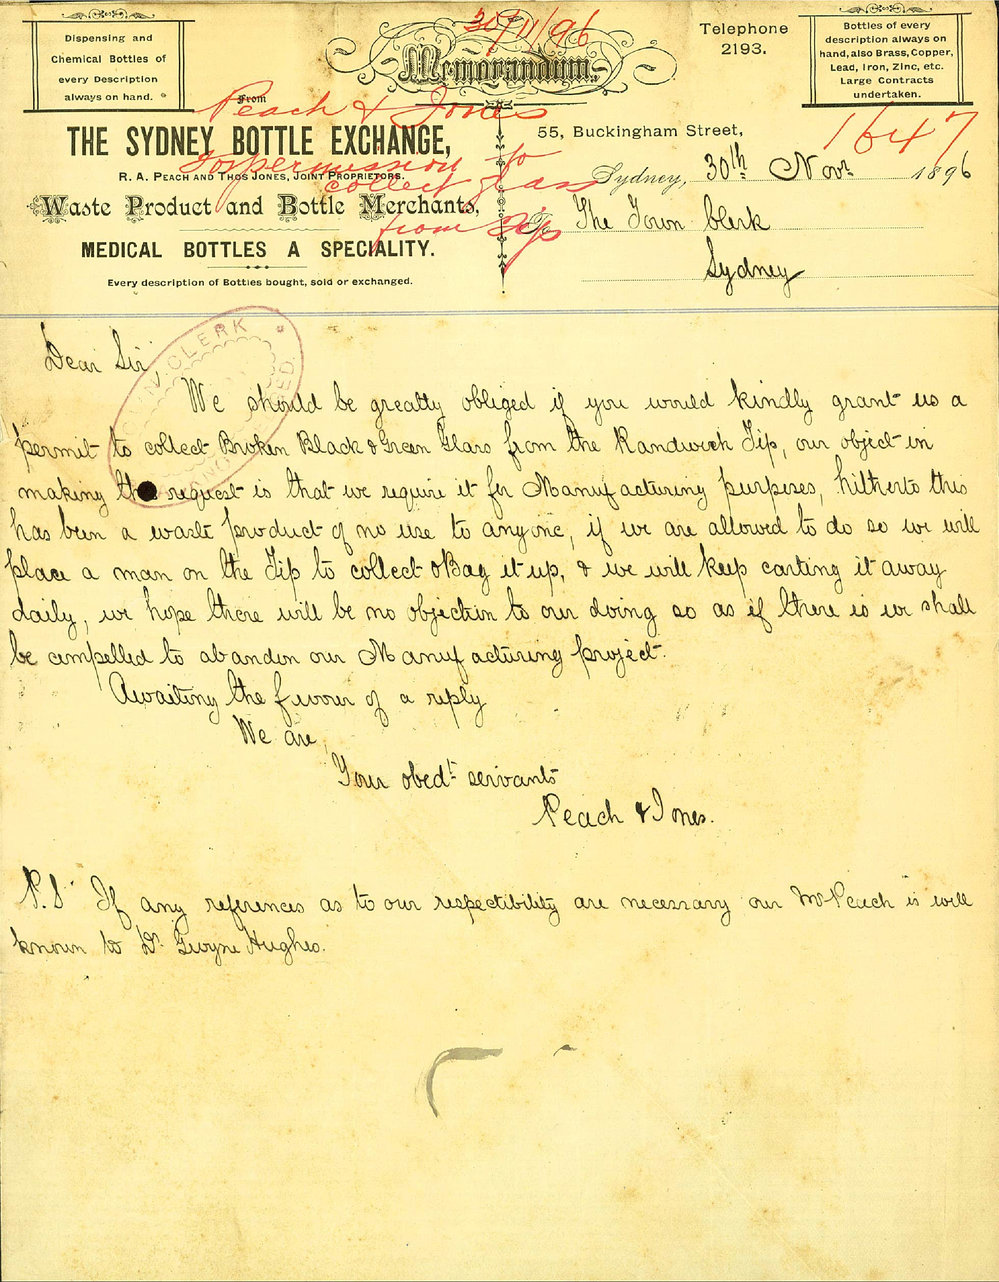 Dispensing and
Chemical Bottles of
every Description
always on hand.
30/11/96
Memorandum.
Telephone
2193.
Bottles of every
description always on
hand, also Brass, Copper,
Lead, Iron, Zinc, etc.
Large Contracts
undertaken.
From
Peach & Jones
for permission to
collect glass
from Tip
1647
THE SYDNEY BOTTLE EXCHANGE,
R. A. PEACH AND THOS JONES, JOINT PROPRIETORS.
Waste Product and Bottle Merchants,
MEDICAL BOTTLES A SPECIALITY.
Every description of Bottles bought, sold or exchanged.
55, Buckingham Street,
Sydney, 30th Novr 1896
To The Town Clerk
Sydney
TOWN CLERK
Dear Sir
We should be greatly obliged if you would kindly grant us a
permit to collect Broken Black & Green Glass from the Randwick Tip, our object in
making the request is that we require it for Manufacturing purposes, hitherto this
has been a waste product of no use to anyone, if we are allowed to do so we will
place a man on the Tip to collect & Bag it up, & we will keep carting it away
daily, we hope there will be no objection to our doing so as if there is we shall
be compelled to abandon our Manufacturing project.
Awaiting the favour of a reply
We are,
Your obedt servants
Peach & Jones.
P.S If any references as to our respectibility are necessary our Mr Peach is well
known to Dr. Gwyne Hughes.